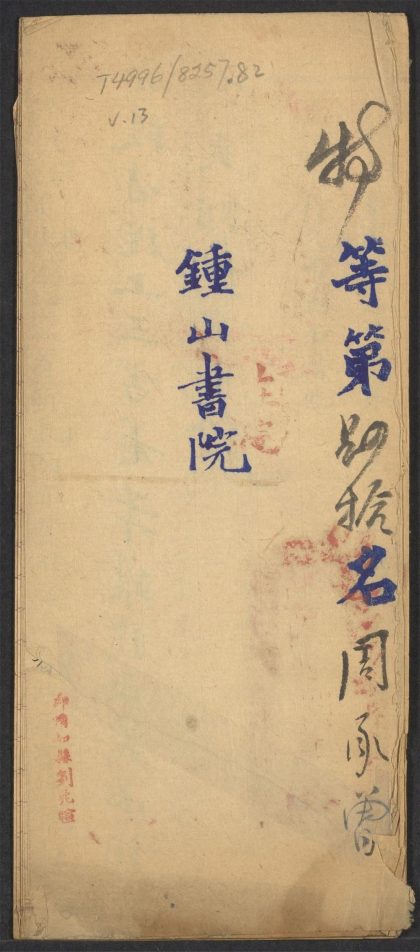 T4996/8257.82
v.13
特等第 拾名周承曾
鍾山書院